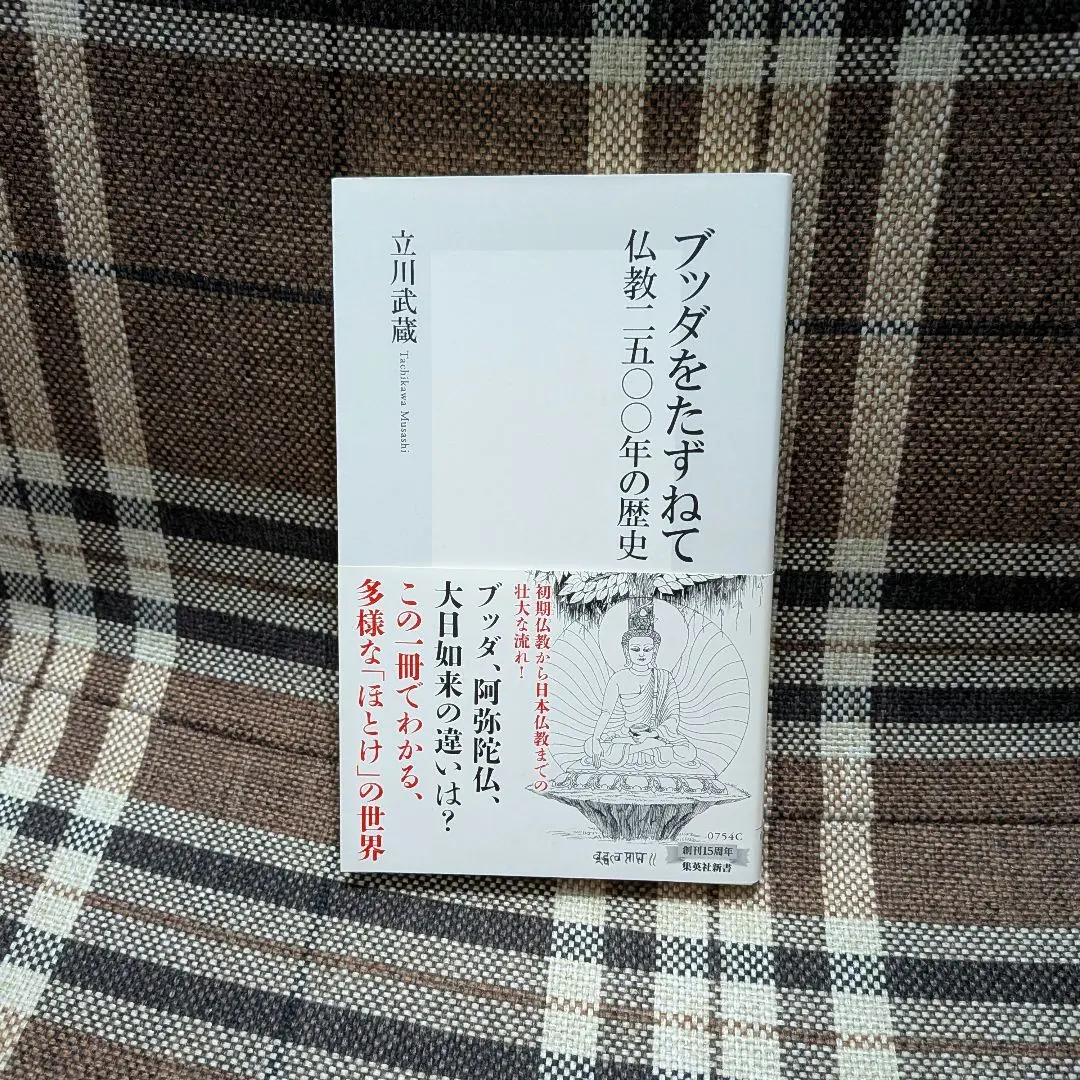 ブッダをたずねて
仏教二五〇〇年の歴史
立川武蔵
Tachikawa Musashi
初期仏教から日本仏教までの
壮大な流れ!
ブッダ、阿弥陀仏、
大日如来の違いは?
この一冊でわかる、
多様な「ほとけ」の世界
0754C
創刊15周年
集英社新書